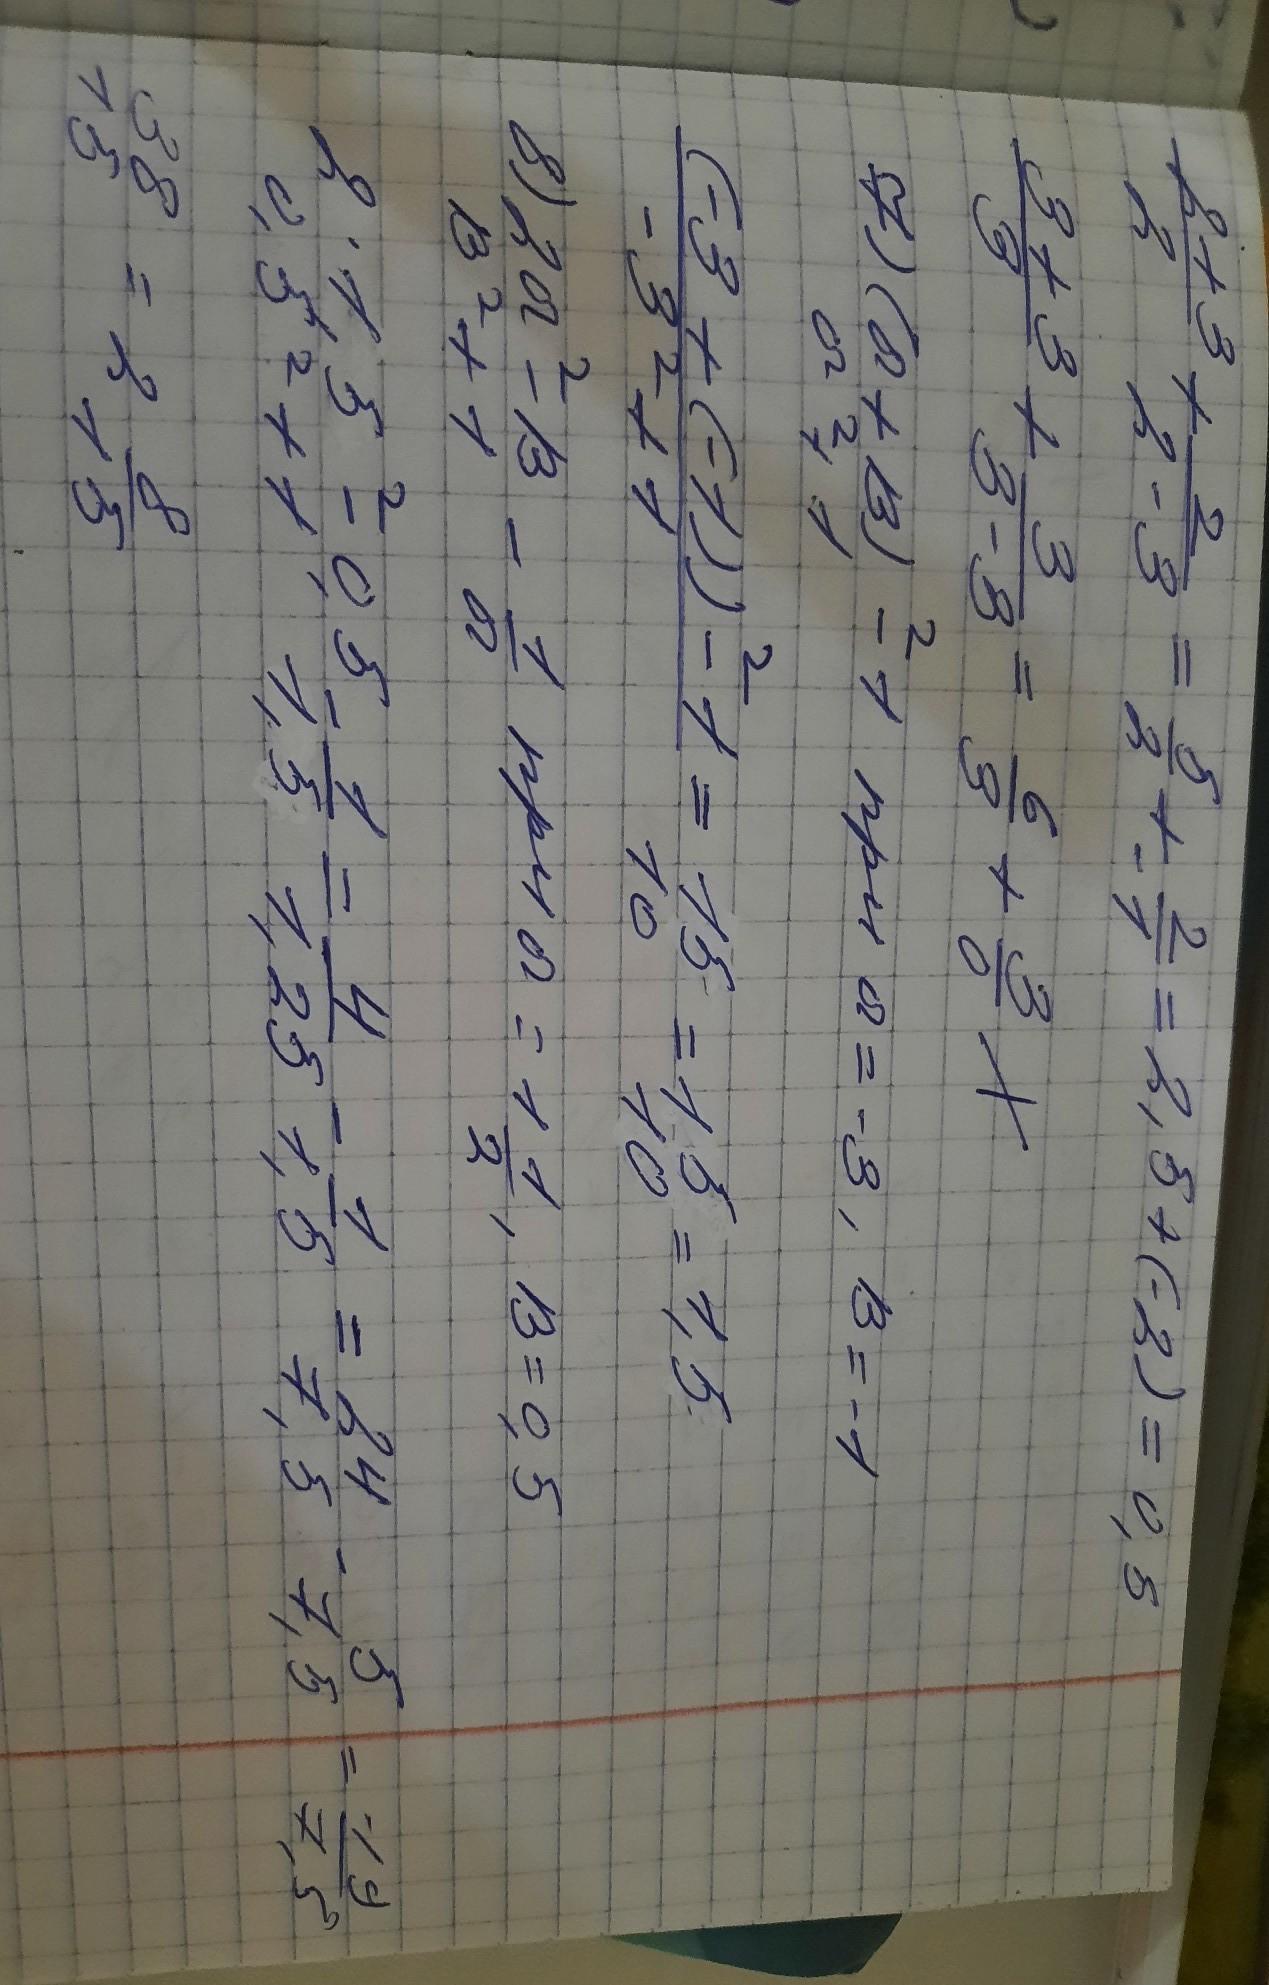 2+3/2 + 2/2-3 = 5/2 + 2/-1 = 2,5+(-2) = 0,5
3+3/3 + 3/3-3 = 6/3 + 3/0
7) (а+в)²-1/а²+1 при а = -3, в = -1
(-3+(-1))²-1/-3²+1 = 15/10 = 15/10 = 1,5
8) 2а²-в/в²+1 - 1/а при а = 1 1/2, в = 0,5
2·1,5²-0,5/0,5²+1 - 1/1,5 = 4/1,25 - 1/1,5 = 24/7,5 - 5/7,5 = 19/7,5
38/15 = 2 8/15